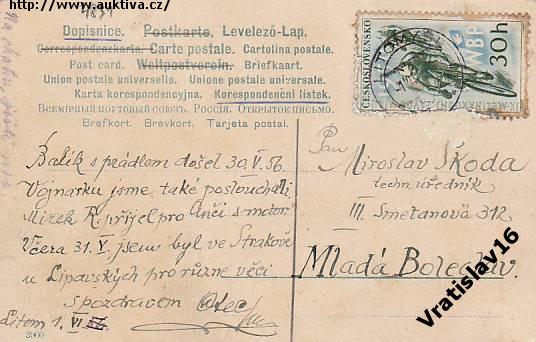 www.auktiva.cz
Dopisnice. Postkarte. Levelező-Lap.
Correspondenzkarte. Carte postale. Cartolina postale.
Post card. Weltpostverein. Briefkaart.
Union postale universelle. Unione postale universale.
Karta korespondencyjna. Korespondenční lístek.
Всемірный почтовый союзъ. Россія. Открытое письмо.
Brefkort. Brevkort. Tarjeta postal.
ČESKOSLOVENSKO
WBP
30h
Balík s prádlem došel 30.V.56
Vojnarku jsme také poslouchali
Mirek R. přijel pro Anči s motor.
Včera 31.V. jsem byl ve Strakově
u Lipavských pro různé věci
S pozdravem Otec
Litom 1.VI.56
3900
Pan
Miroslav Škoda
techn. úředník
III. Smetanova 312
Mladá Boleslav.
Vratislav16